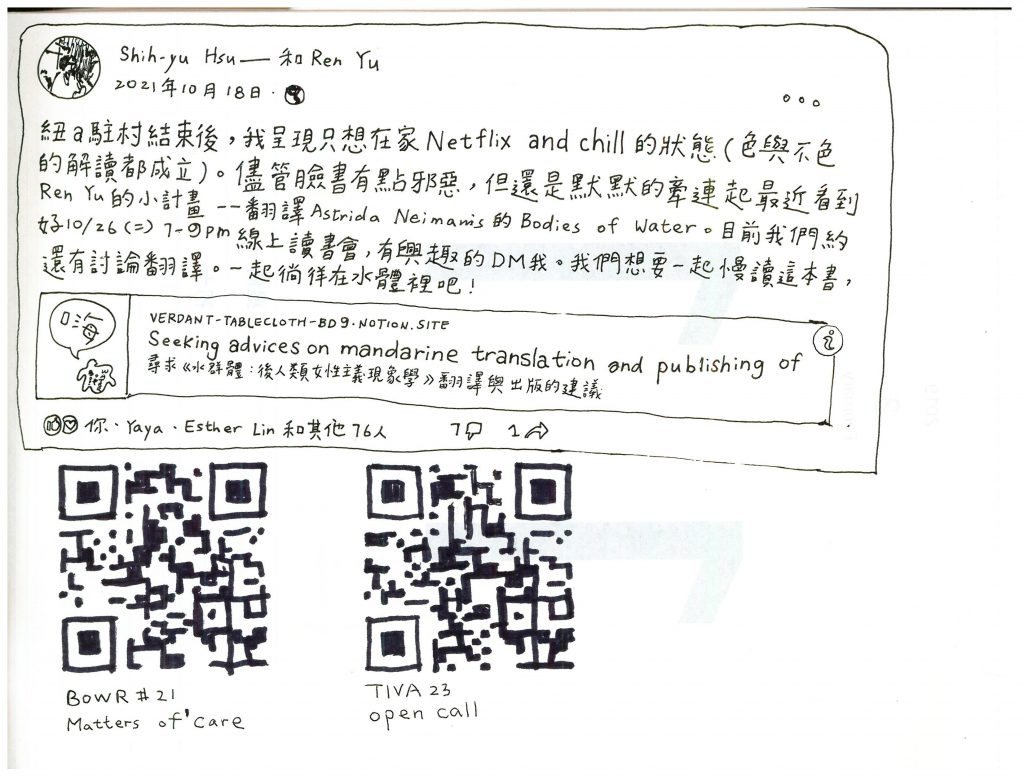 Shih-yu Hsu — 和 Ren Yu
2021年10月18日 ·
紐a駐村結束後，我呈現只想在家 Netflix and chill 的狀態（色與不色
的解讀都成立）。儘管臉書有點邪惡，但還是默默的牽連起最近看到
Ren Yu 的小計畫 -- 翻譯 Astrida Neimanis 的 Bodies of Water。目前我們約
好10/26 (二) 7-9pm 線上讀書會，有興趣的DM我。我們想要一起慢讀這本書，
還有討論翻譯。一起徜徉在水體裡吧！
嗨
VERDANT-TABLECLOTH-BD9.NOTION.SITE
Seeking advices on mandarine translation and publishing of
尋求《水群體：後人類女性主義現象學》翻譯與出版的建議
i
你、Yaya、Esther Lin 和其他76人
7
1
BOWR #21
Matters of care
TIVA 23
open call